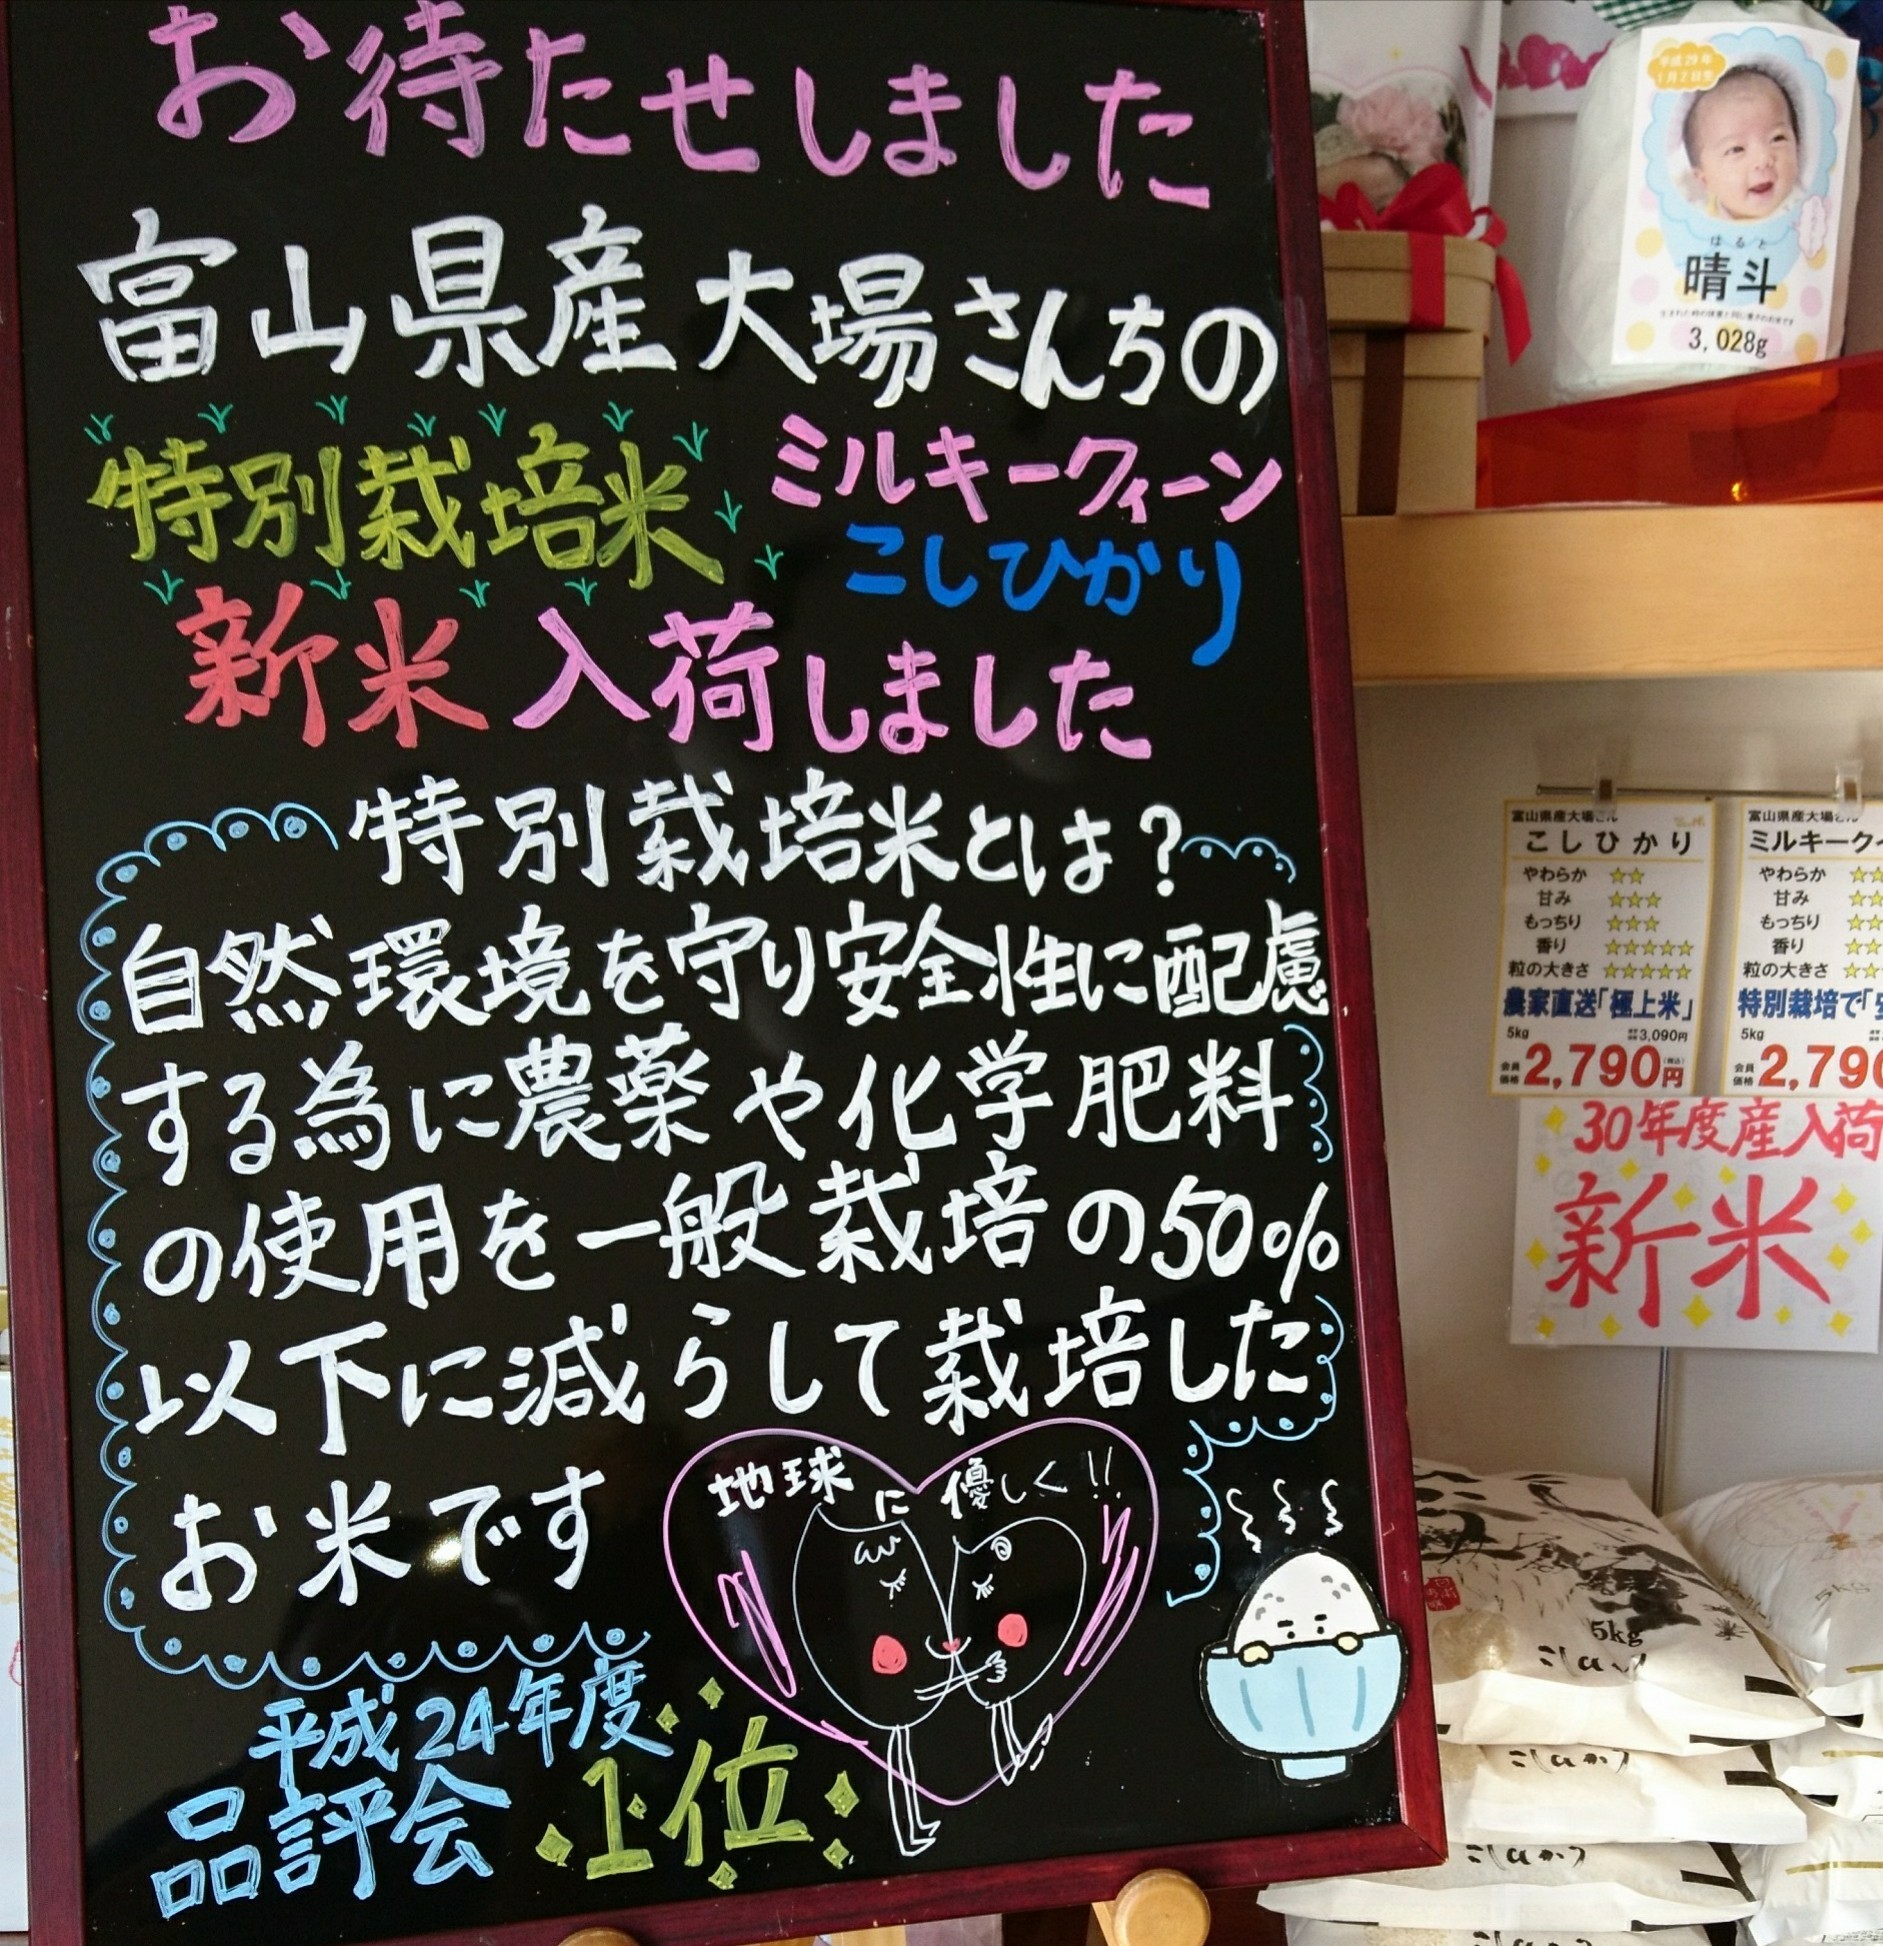 お待たせしました
富山県産大場さんちの
特別栽培米
ミルキークィーン
こしひかり
新米入荷しました
特別栽培米とは?
自然環境を守り安全性に配慮
する為に農薬や化学肥料
の使用を一般栽培の50%
以下に減らして栽培した
お米です
地球に優しく!!
平成24年度
品評会 1位
平成29年
1月2日生
はると
晴斗
3,028g
富山県産大場さん
こしひかり
やわらか ☆☆
甘み ☆☆☆
もっちり ☆☆☆
香り ☆☆☆☆☆
粒の大きさ ☆☆☆☆☆
農家直送「極上米」
5kg
3,090円
会員価格 2,790円
富山県産大場さん
ミルキーク
やわらか ☆☆
甘み ☆☆
もっちり ☆☆
香り ☆☆
粒の大きさ ☆☆
特別栽培で「
5kg
会員価格 2,790
30年度産入荷
新米
5kg
こしひかり
5kg
こしひかり
こしひかり